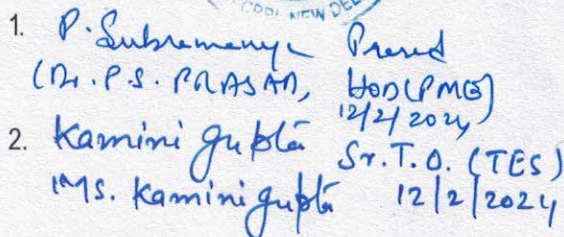 CPRI, NEW DEL
1. P. Subramanya Prasad
(Dr. P.S. PRASAD, HOD(PMG)
12/2/2024
2. Kamini Gupta Sr.T.O. (TES)
Ms. Kamini Gupta 12/2/2024